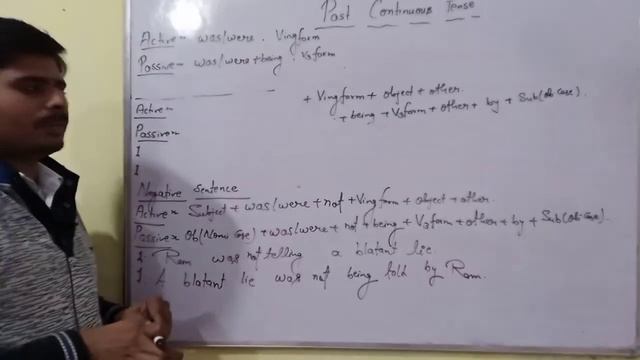 Past Continuous Tense
Active - was/were . Vingform
Passive - was/were + being . V3form
+ Vingform + object + other.
Active -
+ being + V3form + other + by + Sub(ob case).
Passive -
1
1
Negative sentence
Active - Subject + was/were + not + Vingform + object + other.
Passive - Ob(Nomi case) + was/were + not + being + V3form + other + by + Sub(ob case).
1. Ram was not telling a blatant lie.
1 A blatant lie was not being told by Ram.